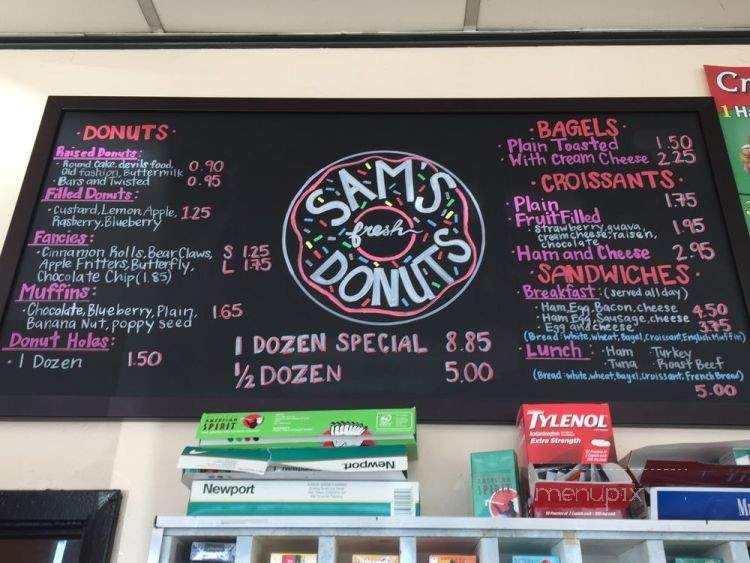 · DONUTS ·
Raised Donuts:
· Round Cake, devils food,
Old fashion, Buttermilk 0.90
· Bars and Twisted 0.95
Filled Donuts:
· Custard, Lemon, Apple, 1.25
Raspberry, Blueberry
Fancies:
· Cinnamon Rolls, Bear Claws, S 1.25
Apple Fritters, Butterfly, L 1.75
Chocolate Chip (1.85)
Muffins:
· Chocolate, Blueberry, Plain, 1.65
Banana Nut, poppy seed
Donut Holes:
· 1 Dozen 1.50
SAM'S
fresh
DONUTS
1 DOZEN SPECIAL 8.85
1/2 DOZEN 5.00
· BAGELS ·
Plain Toasted 1.50
With Cream Cheese 2.25
CROISSANTS ·
Plain 1.75
Fruit Filled
· strawberry, guava, 1.95
cream cheese, raisen,
chocolate
Ham and Cheese 2.95
· SANDWICHES ·
Breakfast: (served all day)
· Ham, Egg, Bacon, cheese 4.50
· Ham, Egg, Sausage, cheese
· Egg and cheese 3.75
(Bread: white, wheat, Bagel, Croissant, English Muffin)
Lunch: · Ham · Turkey
· Tuna · Roast Beef
(Bread: white, wheat, Bagel, Croissant, French Bread)
5.00
Cr
1 Ha
AMERICAN
SPIRIT
Newport
Newport
AMERICAN
SPIRIT
TYLENOL
Extra Strength
menupix
Ma